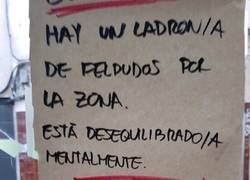 HAY UN LADRON/A
DE FELPUDOS POR
LA ZONA.
ESTÁ DESEQUILIBRADO/A
MENTALMENTE.